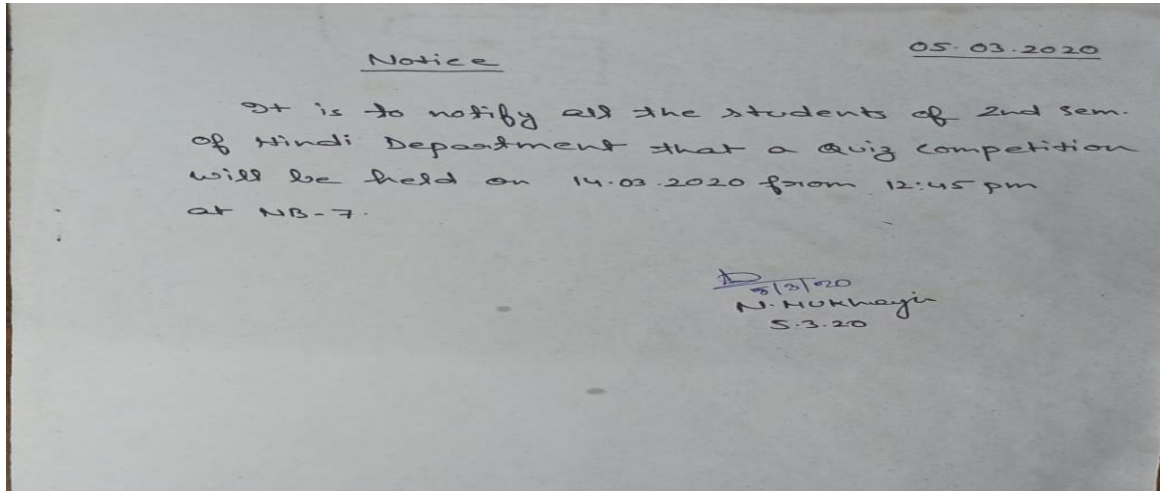 05.03.2020
Notice
It is to notify all the students of 2nd Sem.
of Hindi Department that a Quiz Competition
will be held on 14.03.2020 from 12:45 pm
at NB-7.
5/3/2020
N. Mukherjee
5.3.20